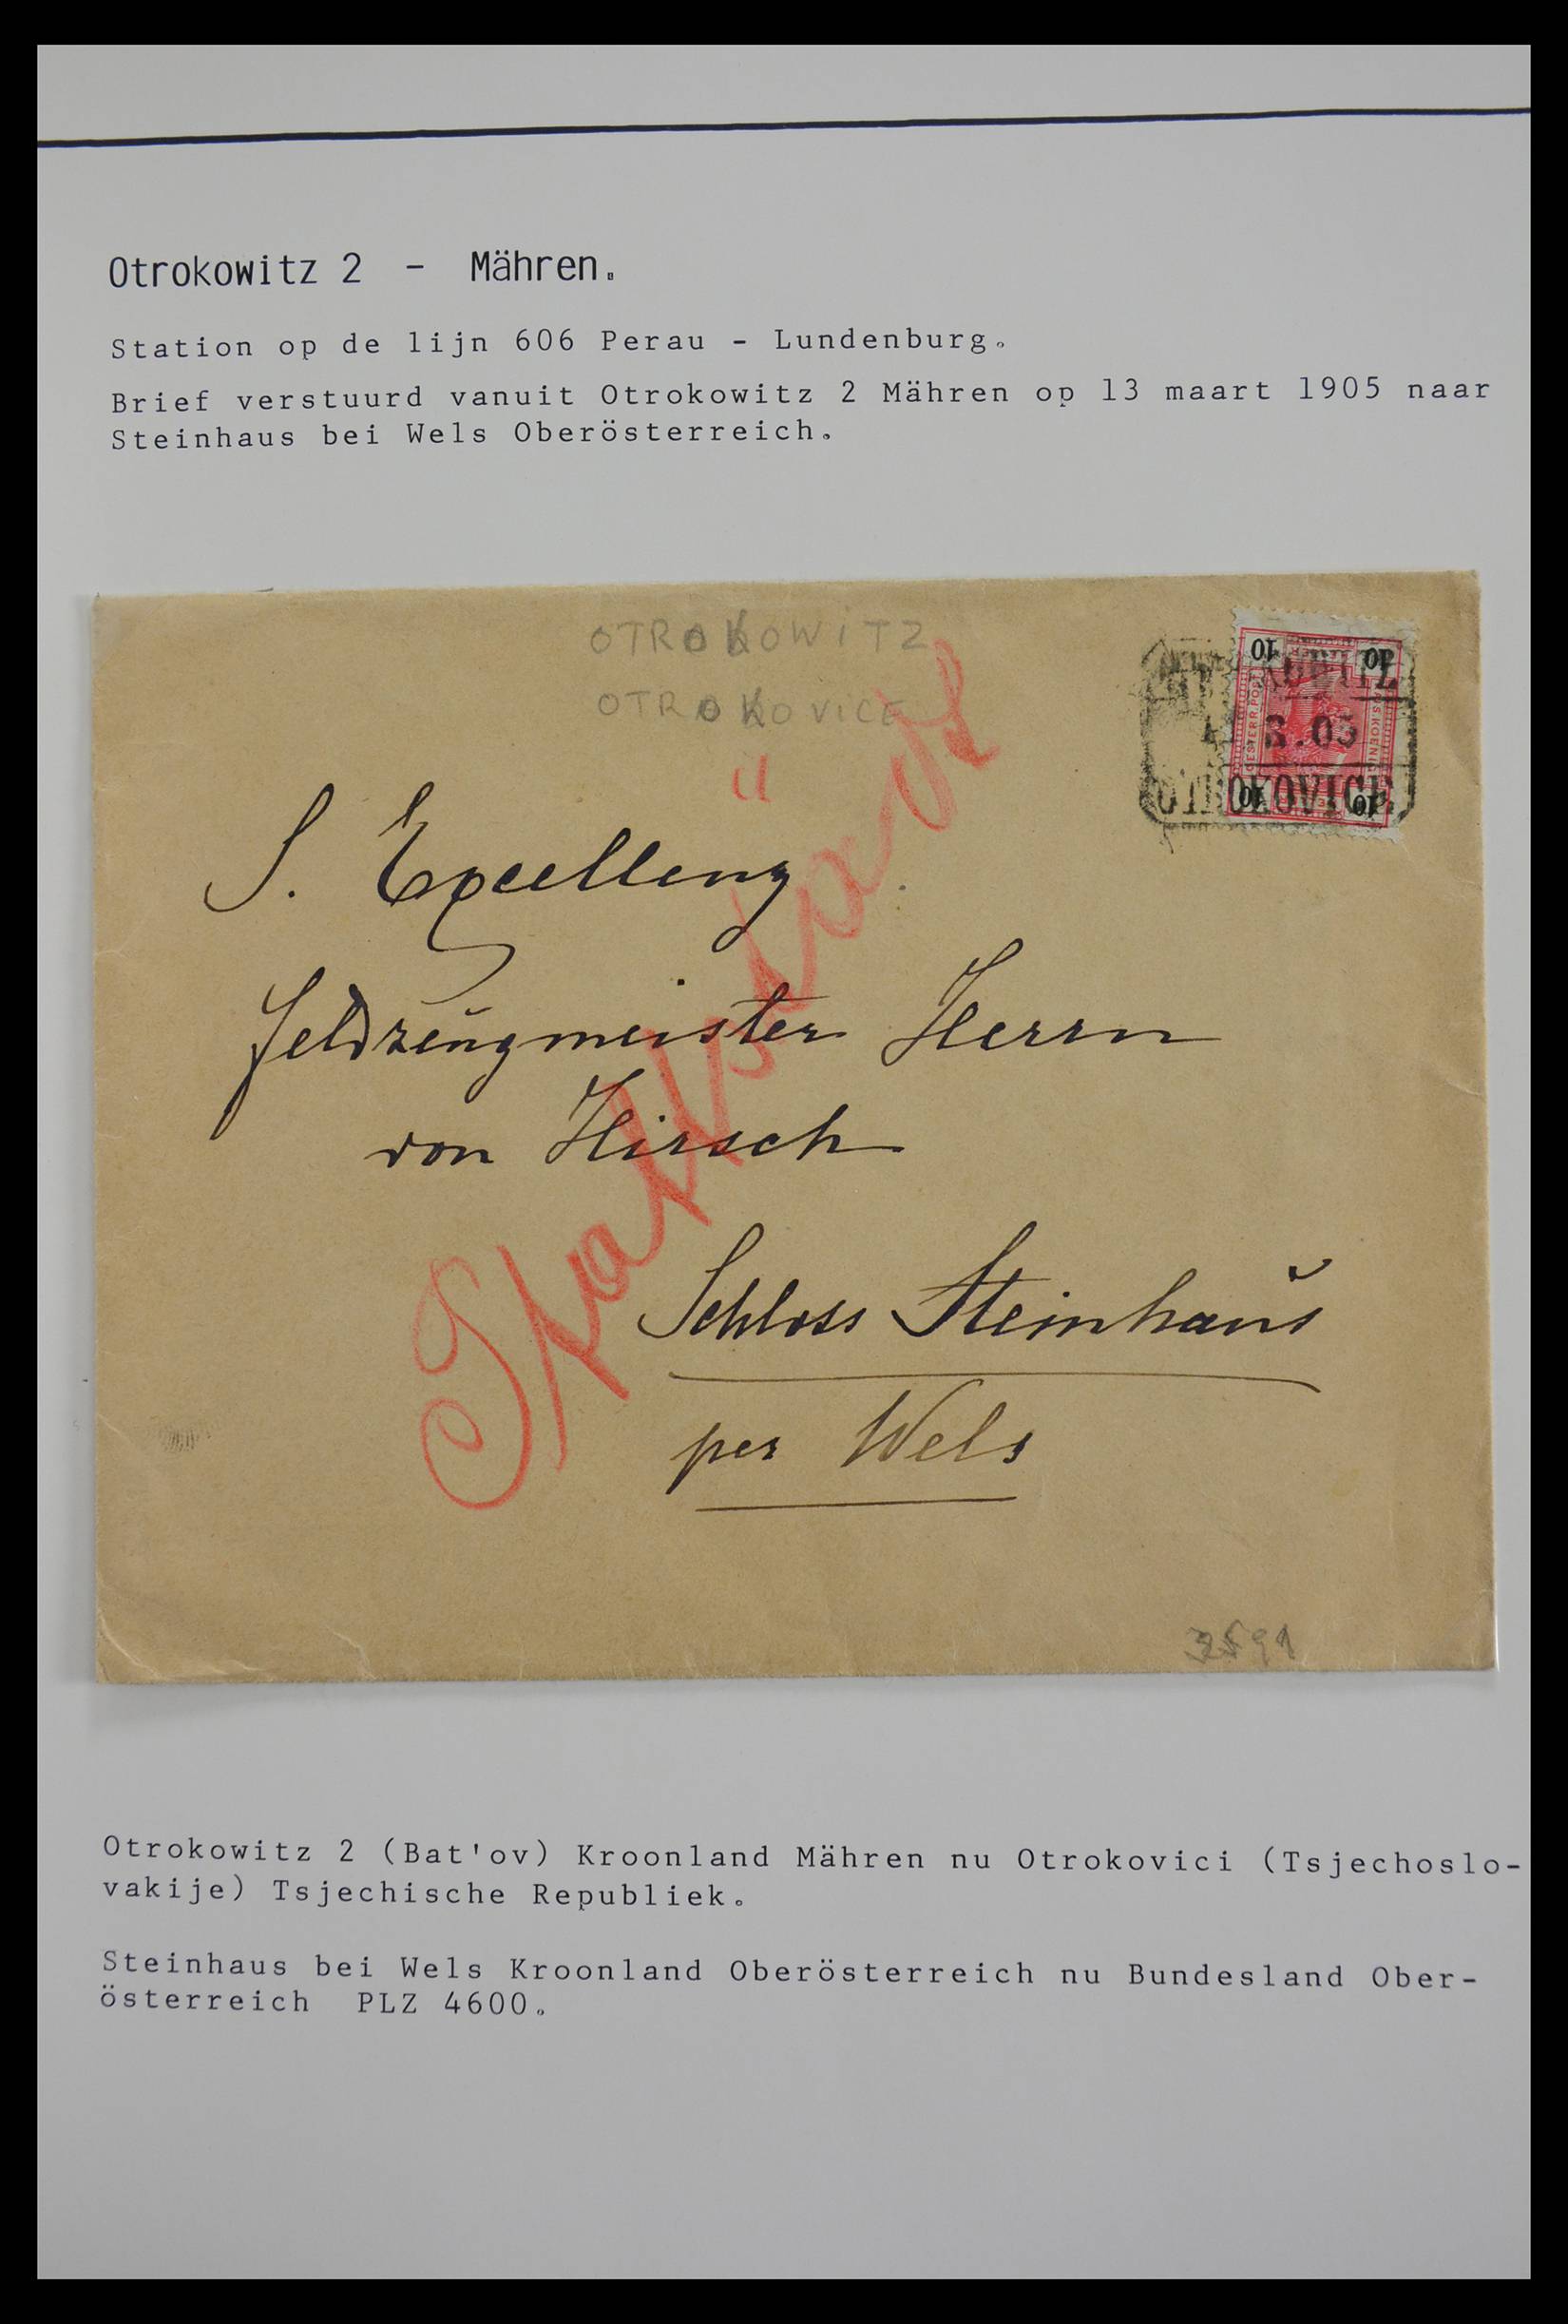 Otrokowitz 2 - Mähren.
Station op de lijn 606 Perau - Lundenburg.
Brief verstuurd vanuit Otrokowitz 2 Mähren op 13 maart 1905 naar
Steinhaus bei Wels Oberösterreich.
OTROKOWITZ
OTROKOVICE
10 10
3.05
OTROKOVICE
10 10
S. Excellenz
Feldzeugmeister Herrn
von Hirsch
Schloss Steinhaus
per Wels
91
Otrokowitz 2 (Bat'ov) Kroonland Mähren nu Otrokovici (Tsjechoslo-
vakije) Tsjechische Republiek.
Steinhaus bei Wels Kroonland Oberösterreich nu Bundesland Ober-
österreich PLZ 4600.